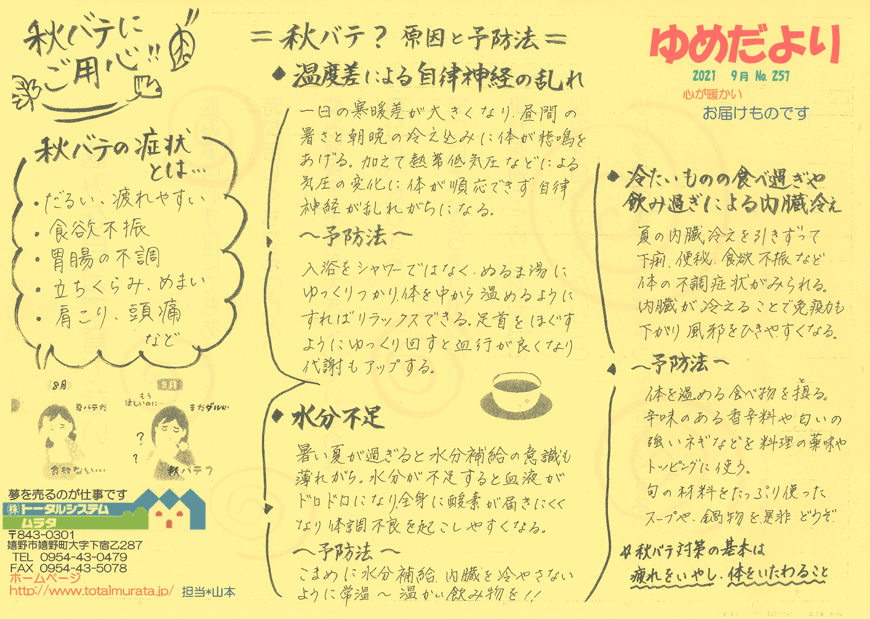 秋バテに
ご用心!!
秋バテの症状
とは…
・だるい、疲れやすい
・食欲不振
・胃腸の不調
・立ちくらみ、めまい
・肩こり、頭痛
など
8月
夏バテだ
食欲ない…
9月
もう
涼しいのに…
まだダルい
?
?
秋バテ?
夢を売るのが仕事です
㈱トータルシステム
ムラタ
〒843-0301
嬉野市嬉野町大字下宿乙287
TEL 0954-43-0479
FAX 0954-43-5078
ホームページ
http://www.totalmurata.jp/ 担当*山本
=秋バテ? 原因と予防法=
◆温度差による自律神経の乱れ
一日の寒暖差が大きくなり、昼間の
暑さと朝晩の冷え込みに体が悲鳴を
あげる。加えて熱帯低気圧などによる
気圧の変化に体が順応できず自律
神経が乱れがちになる。
〜予防法〜
入浴をシャワーではなく、ぬるま湯に
ゆっくりつかり、体を中から温めるように
すればリラックスできる。足首をほぐす
ようにゆっくり回すと血行が良くなり
代謝もアップする。
◆水分不足
暑い夏が過ぎると水分補給の意識も
薄れがち。水分が不足すると血液が
ドロドロになり、全身に酸素が届きにくく
なり体調不良を起こしやすくなる。
〜予防法〜
こまめに水分補給、内臓を冷やさない
ように常温〜温かい飲み物を!!
ゆめだより
2021 9月 No. 257
心が暖かい
お届けものです
◆冷たいものの食べ過ぎや
飲み過ぎによる内臓冷え
夏の内臓冷えを引きずって
下痢、便秘、食欲不振など
体の不調症状がみられる。
内臓が冷えることで免疫力も
下がり風邪をひきやすくなる。
〜予防法〜
体を温める食べ物を摂る。
辛味のある香辛料や匂いの
強いネギなどを料理の薬味や
トッピングに使う。
旬の材料をたっぷり使った
スープや、鍋物を是非どうぞ
♯秋バテ対策の基本は
疲れをいやし、体をいたわること